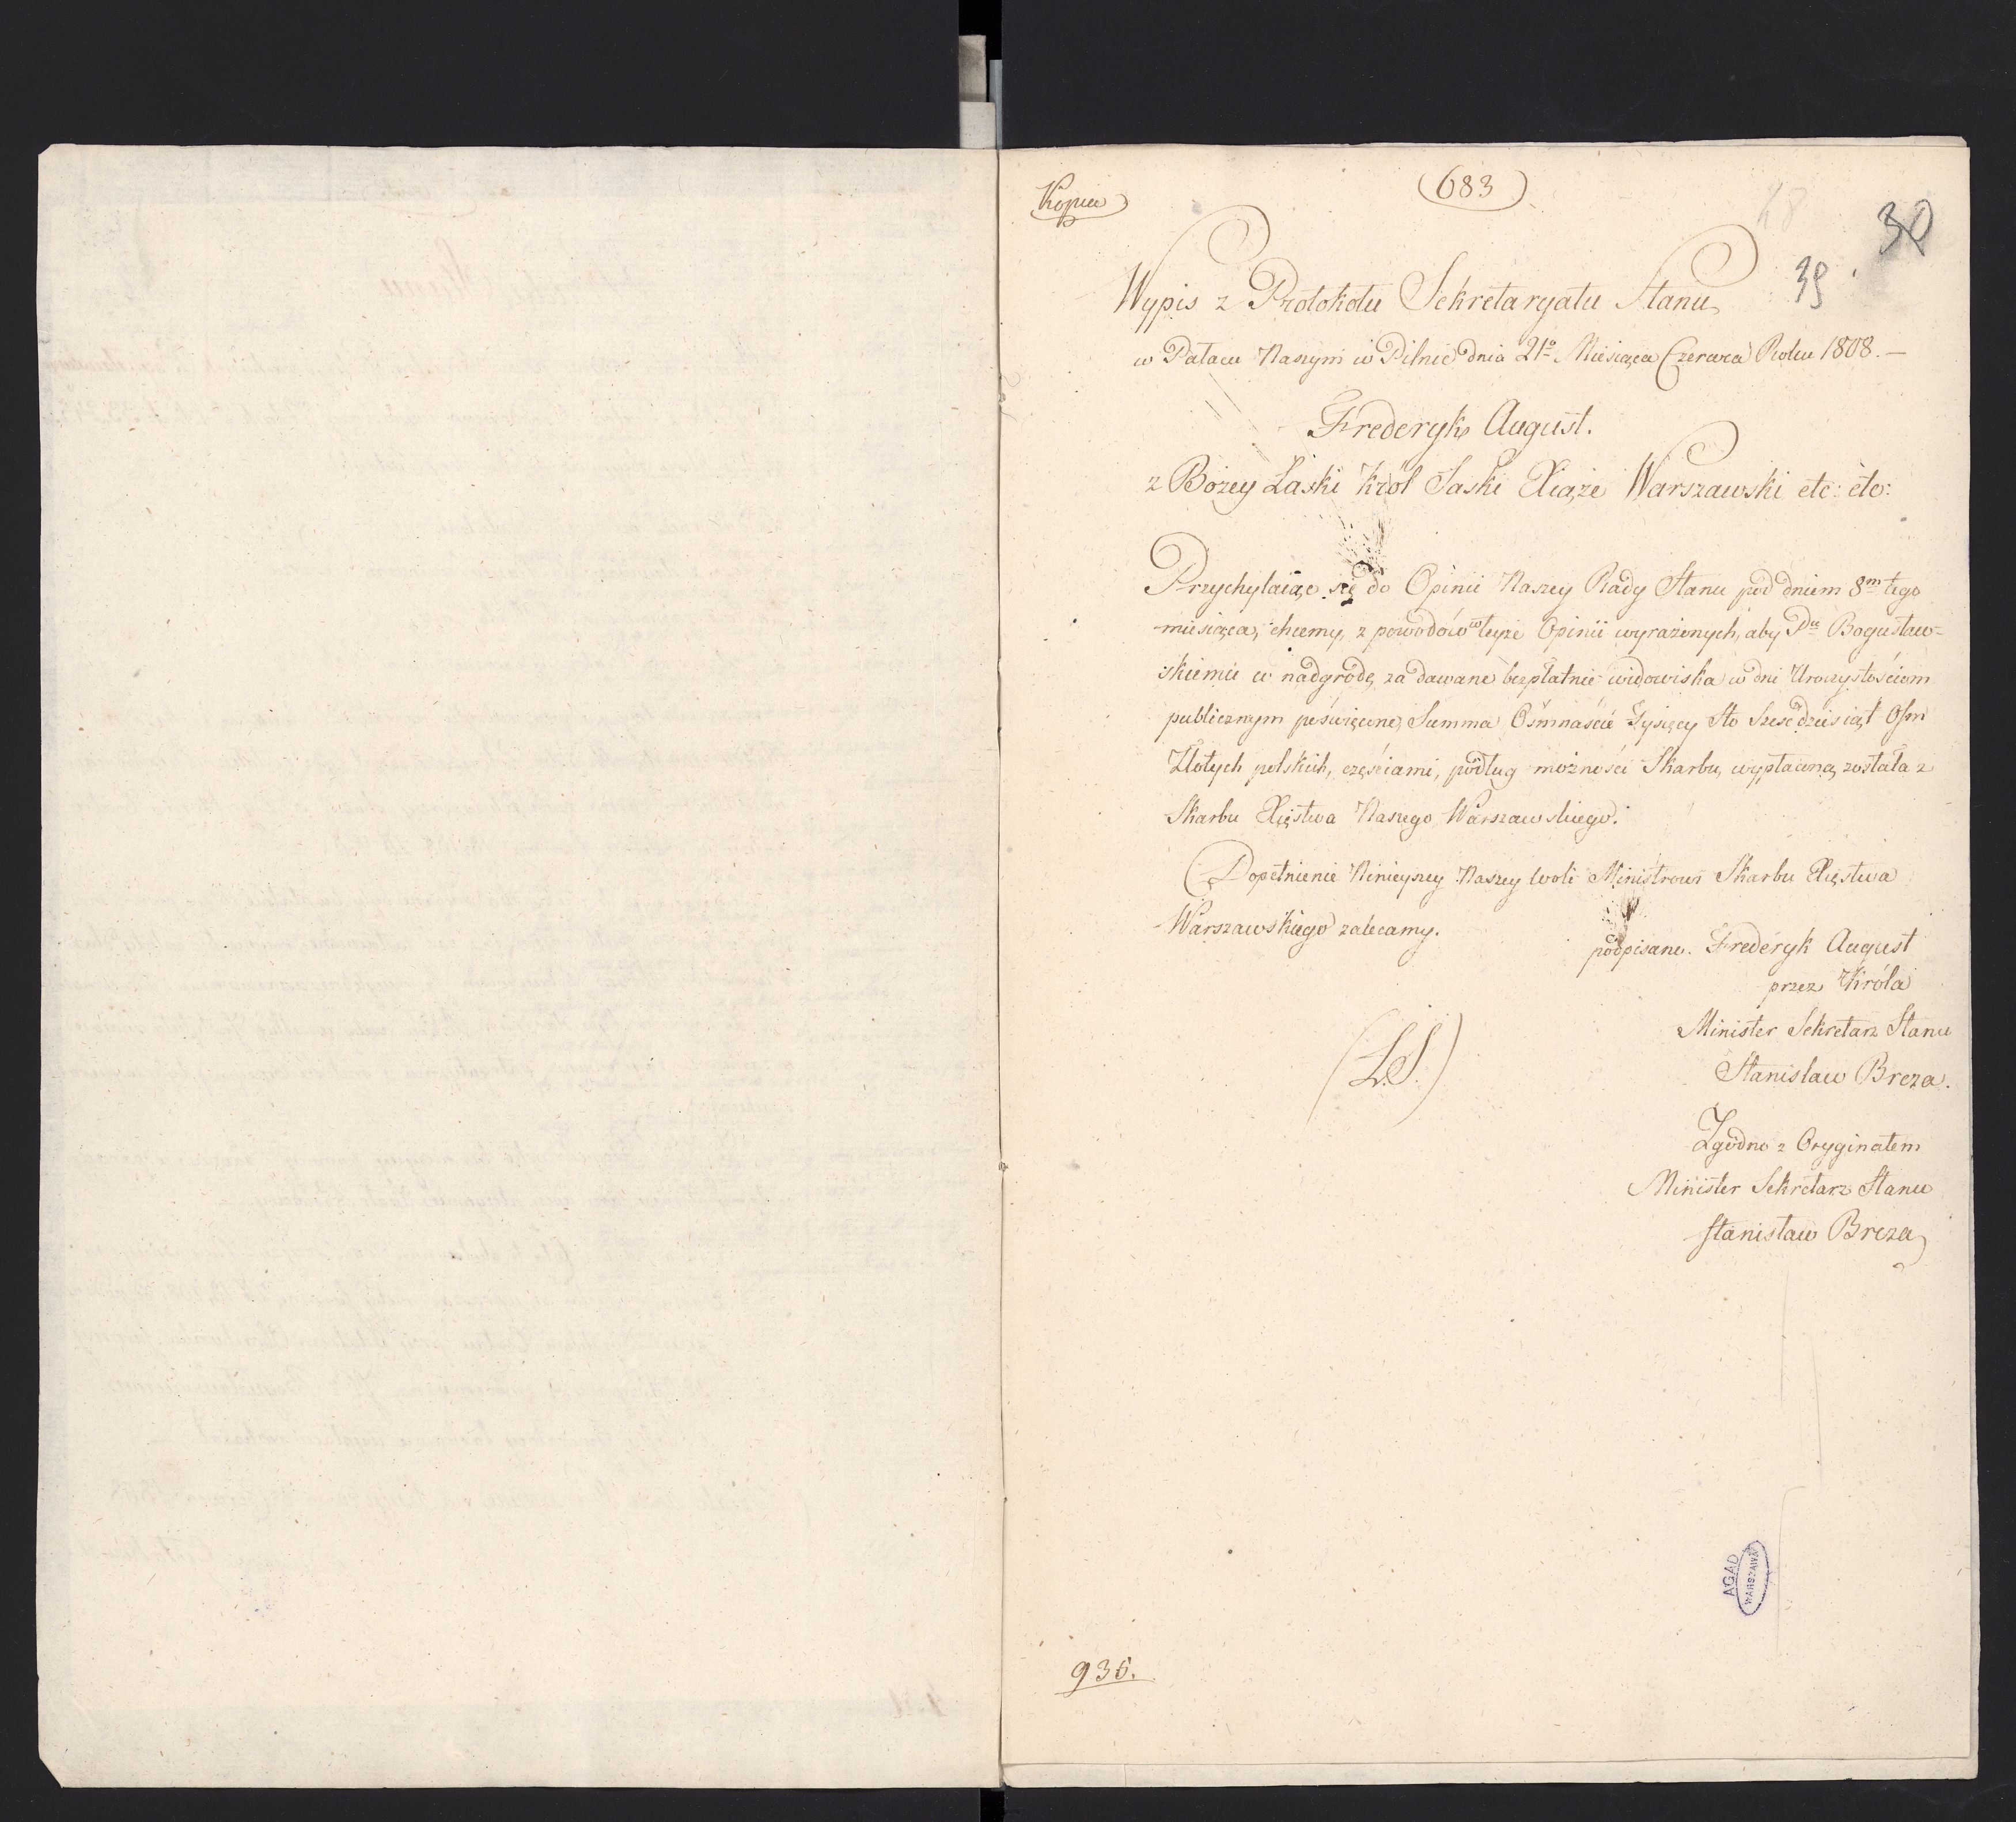 Kopia
(683)
28
30
39
Wypis z Protokołu Sekretaryatu Stanu
w Pałacu Naszym w Pilnic dnia 21o Miesiąca Czerwca Roku 1808. —
Frederyk August.
z Bożey Łaski Król Saski Xiąże Warszawski etc: etc:
Przychylaiąc się do Opinii Naszey Rady Stanu pod dniem 8m tego
miesiąca, chcemy, z powodów w teyże Opinii wyrażonych, aby Pu Bogusław=
skiemu w nadgrodę za dawane bezpłatnie widowiska w dni Uroczystościom
publicznym poświęcone, Summa Ośmnaście Tysięcy Sto Sześćdziesiąt Ośm
Złotych polskich, częściami, podług możności Skarbu, wypłaconą została z
Skarbu Xięstwa Naszego Warszawskiego.
Dopełnienie Ninieyszey Naszey woli Ministrowi Skarbu Xięstwa
Warszawskiego zalecamy.
podpisano. Frederyk August
przez Króla
Minister Sekretarz Stanu
Stanisław Breza.
(L.S.)
Zgodno z Oryginałem
Minister Sekretarz Stanu
Stanisław Breza
AGAD
WARSZAWA
935.